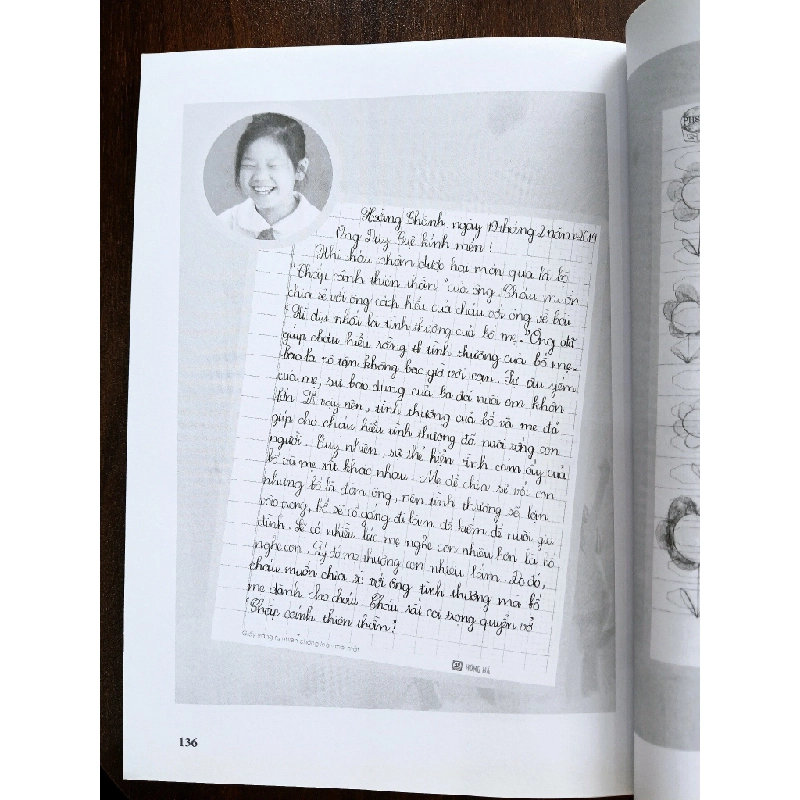 Hoằng Thành ngày 19 tháng 2 năm 2019
Ông Duy Tuệ kính mến!
Khi cháu nhận được hai món quà là bộ
"Thắp sinh thiên thần" của ông. Cháu muốn
chia sẻ với ông cách hiểu của cháu với ông về bài
nhất là tình thương của bố mẹ. Ông đã
giúp cháu hiểu tình thương của bố mẹ
bao la vô tận không bao giờ vơi cạn. Từ âu yếm
của mẹ, sự bao dung của ba đã nuôi em khôn
lớn. Vì vậy nên, tình thương của bố và mẹ đã
giúp cho cháu hiểu tình thương đã nuôi sống con
người. Tuy nhiên, sự thể hiện tình cảm ấy của
bố và mẹ rất khác nhau. Mẹ dễ chia sẻ với con
nhưng bố là đàn ông, nên tình thường sẽ lặn
vào trong, bố sẽ cố gắng đi làm để kiếm để nuôi gia
đình. Sẽ có nhiều lúc mẹ nghe con nhiều hơn là bố
nghe con. mẹ thương con nhiều lắm. Do đó,
cháu muốn chia sẻ với ông tình thương mà bố
mẹ dành cho cháu. Cháu rất coi trọng quyển vở
Thắp sinh thiên thần!
HONG HA
136